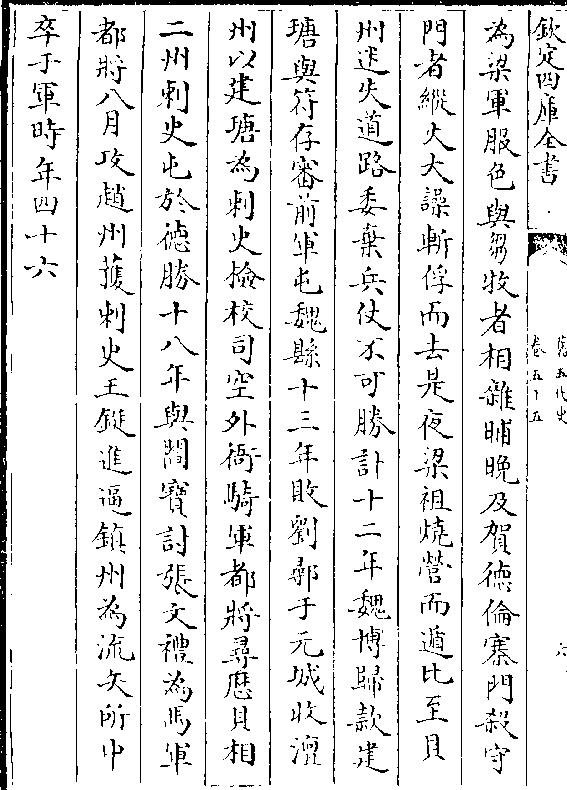 欽定四庫全書
舊五代史
卷五十五
六
為梁軍服色與芻牧者相雜晡晚及賀德倫寨門殺守
門者縱火大譟斬俘而去是夜梁祖燒營而遁比至貝
州迷失道路委棄兵仗不可勝計十二年魏博歸款建
瑭與符存審前軍屯魏縣十三年敗劉鄩于元城收澶
州以建瑭為刺史撿校司空外衙騎軍都將尋歴貝相
二州刺史屯於德勝十八年與閻寶討張文禮為馬軍
都將八月攻趙州獲刺史王鋌進逼鎮州為流矢所中
卒于軍時年四十六